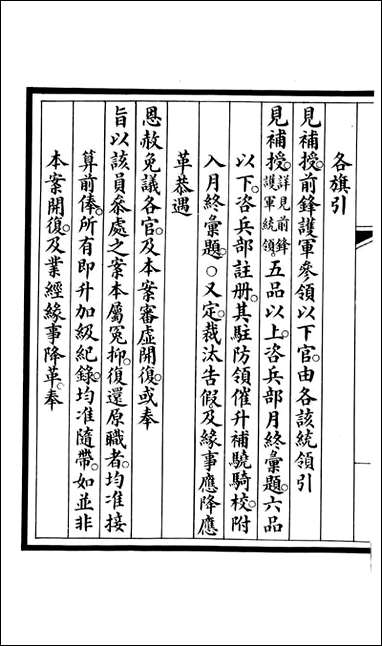 各旗引
見補授。前鋒護軍參領以下官。由各該統領引
見補授。詳見前鋒護軍統領。五品以上。咨兵部月終彙題。六品
以下。咨兵部註冊。其駐防領催升補驍騎校。附
入月終彙題。○又定。裁汰告假及緣事應降應
革恭遇
恩赦免議各官。及本案審虛開復。或奉
旨以該員叅處之案本屬冤抑。復還原職者。均准接
算前俸。所有即升加級紀錄。均准隨帶。如並非
本案開復。及業經緣事降革。奉